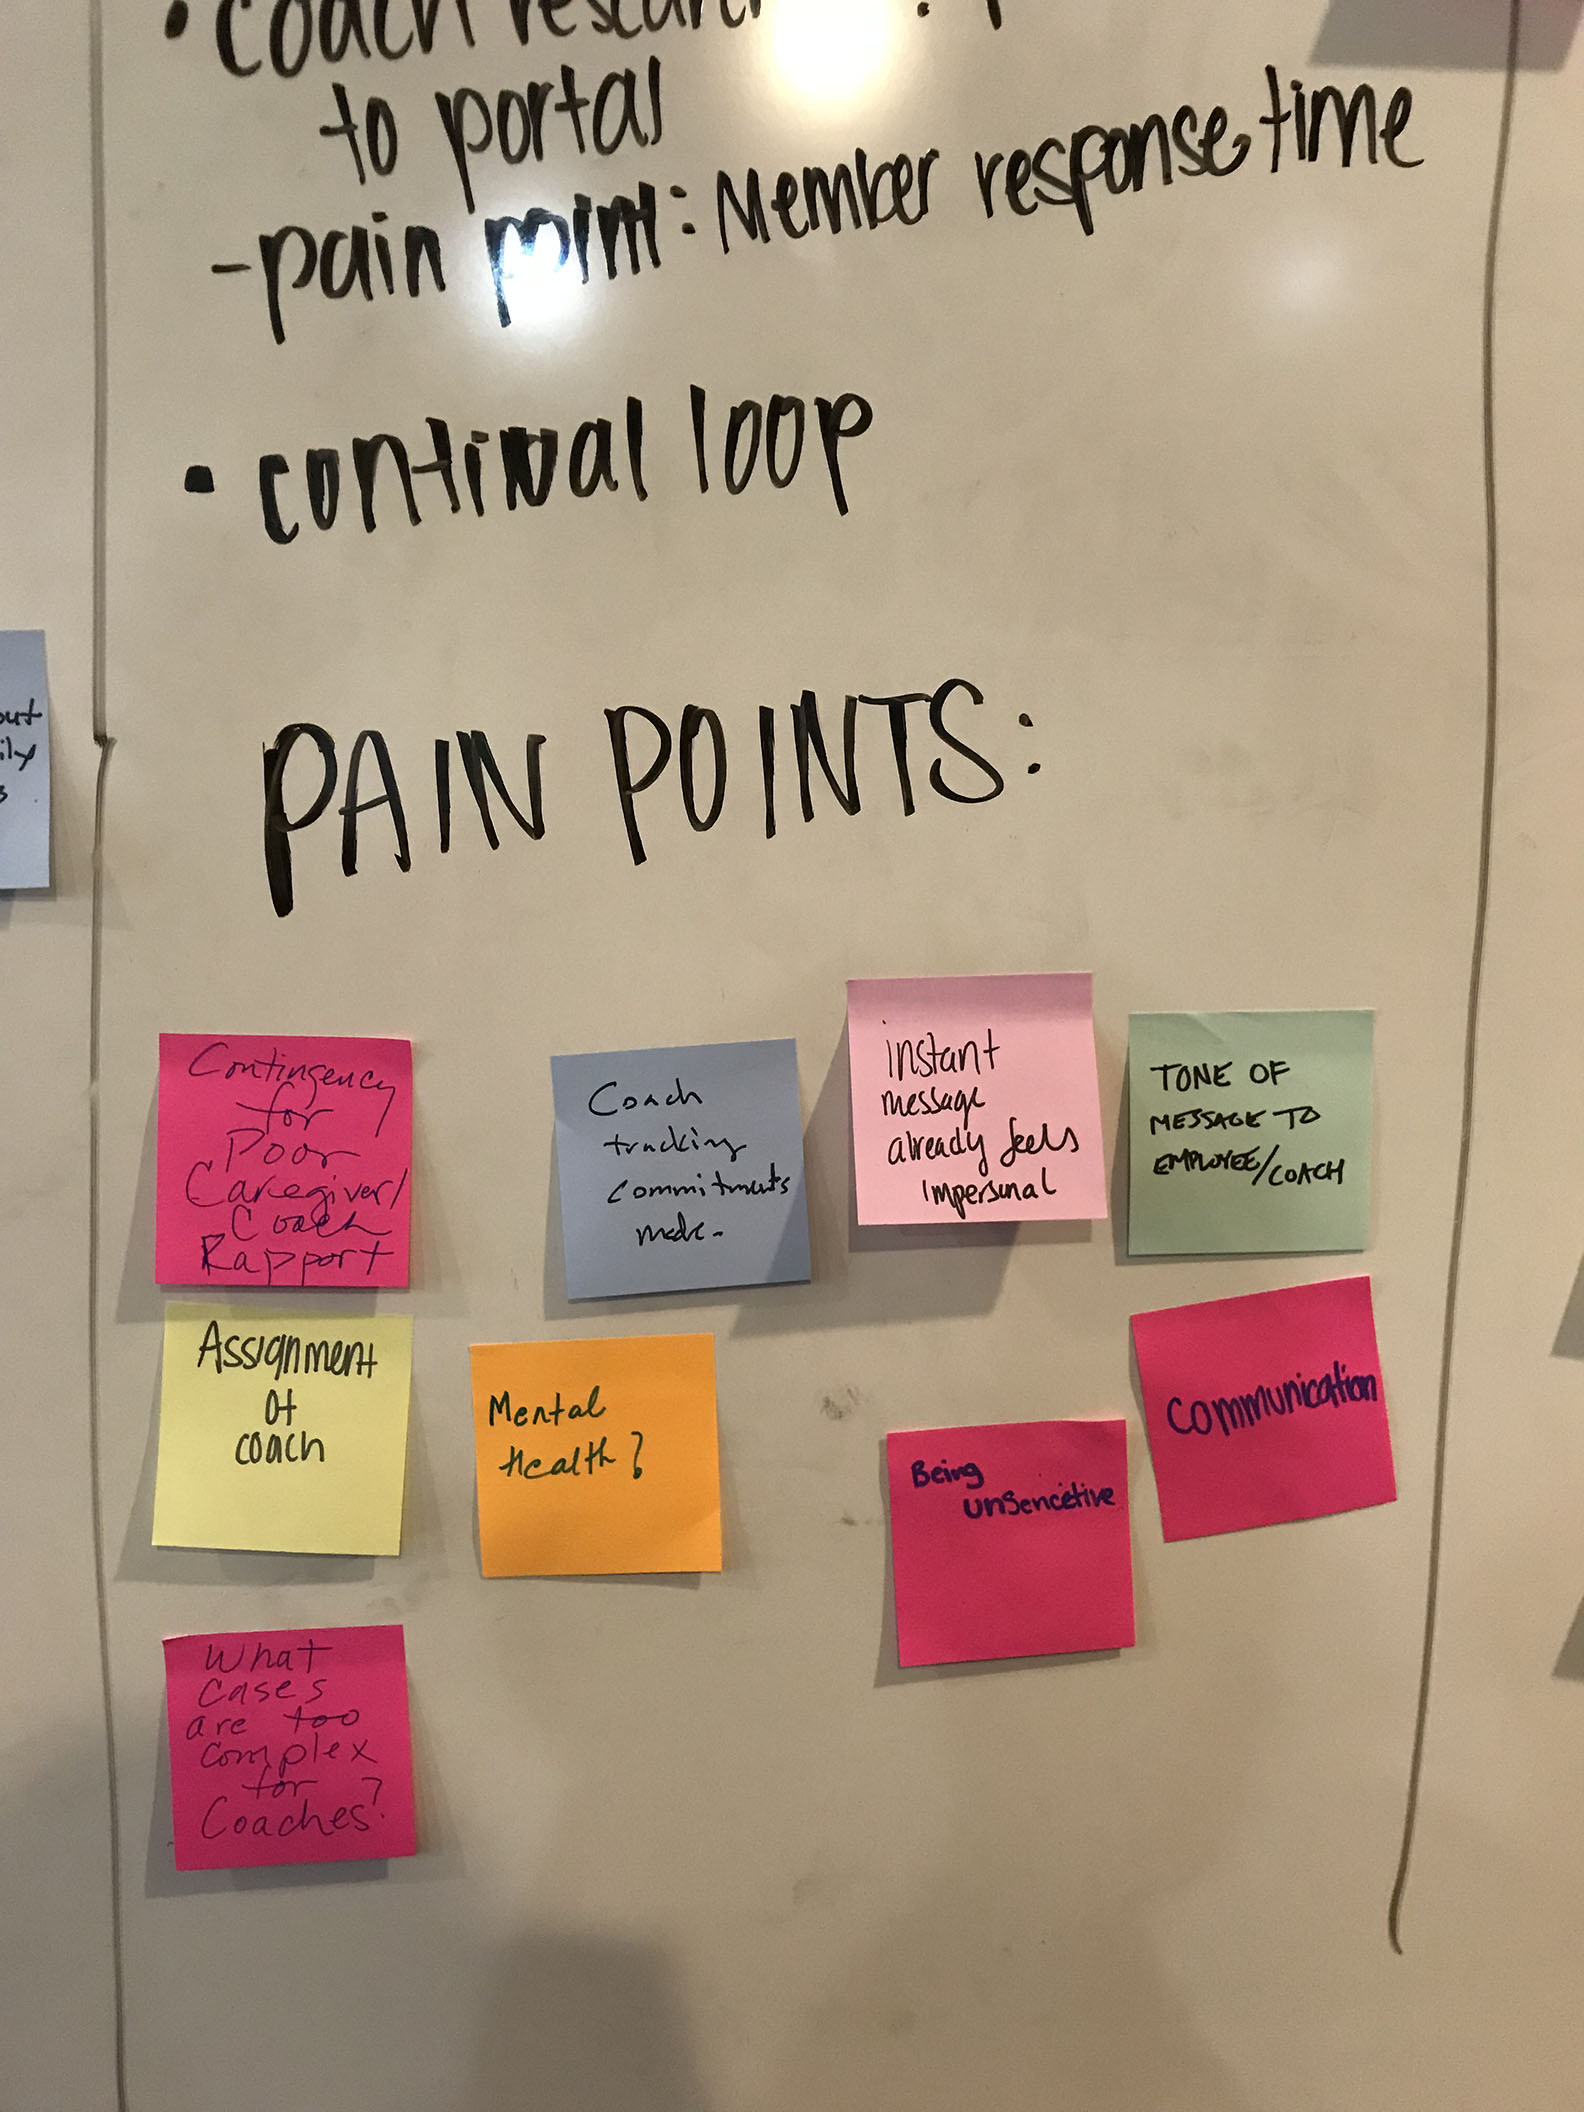 • coach research
to portal
- pain point: Member response time
• continual loop
out
PAIN POINTS:
Contingency
for
Poor
Caregiver/
Coach
Rapport
Coach
tracking
commitments
made.
instant
message
already feels
impersonal
TONE OF
MESSAGE TO
EMPLOYEE/COACH
Assignment
of
coach
Mental
Health?
Being
unsencetive
communication
What
cases
are too
complex
for
Coaches?